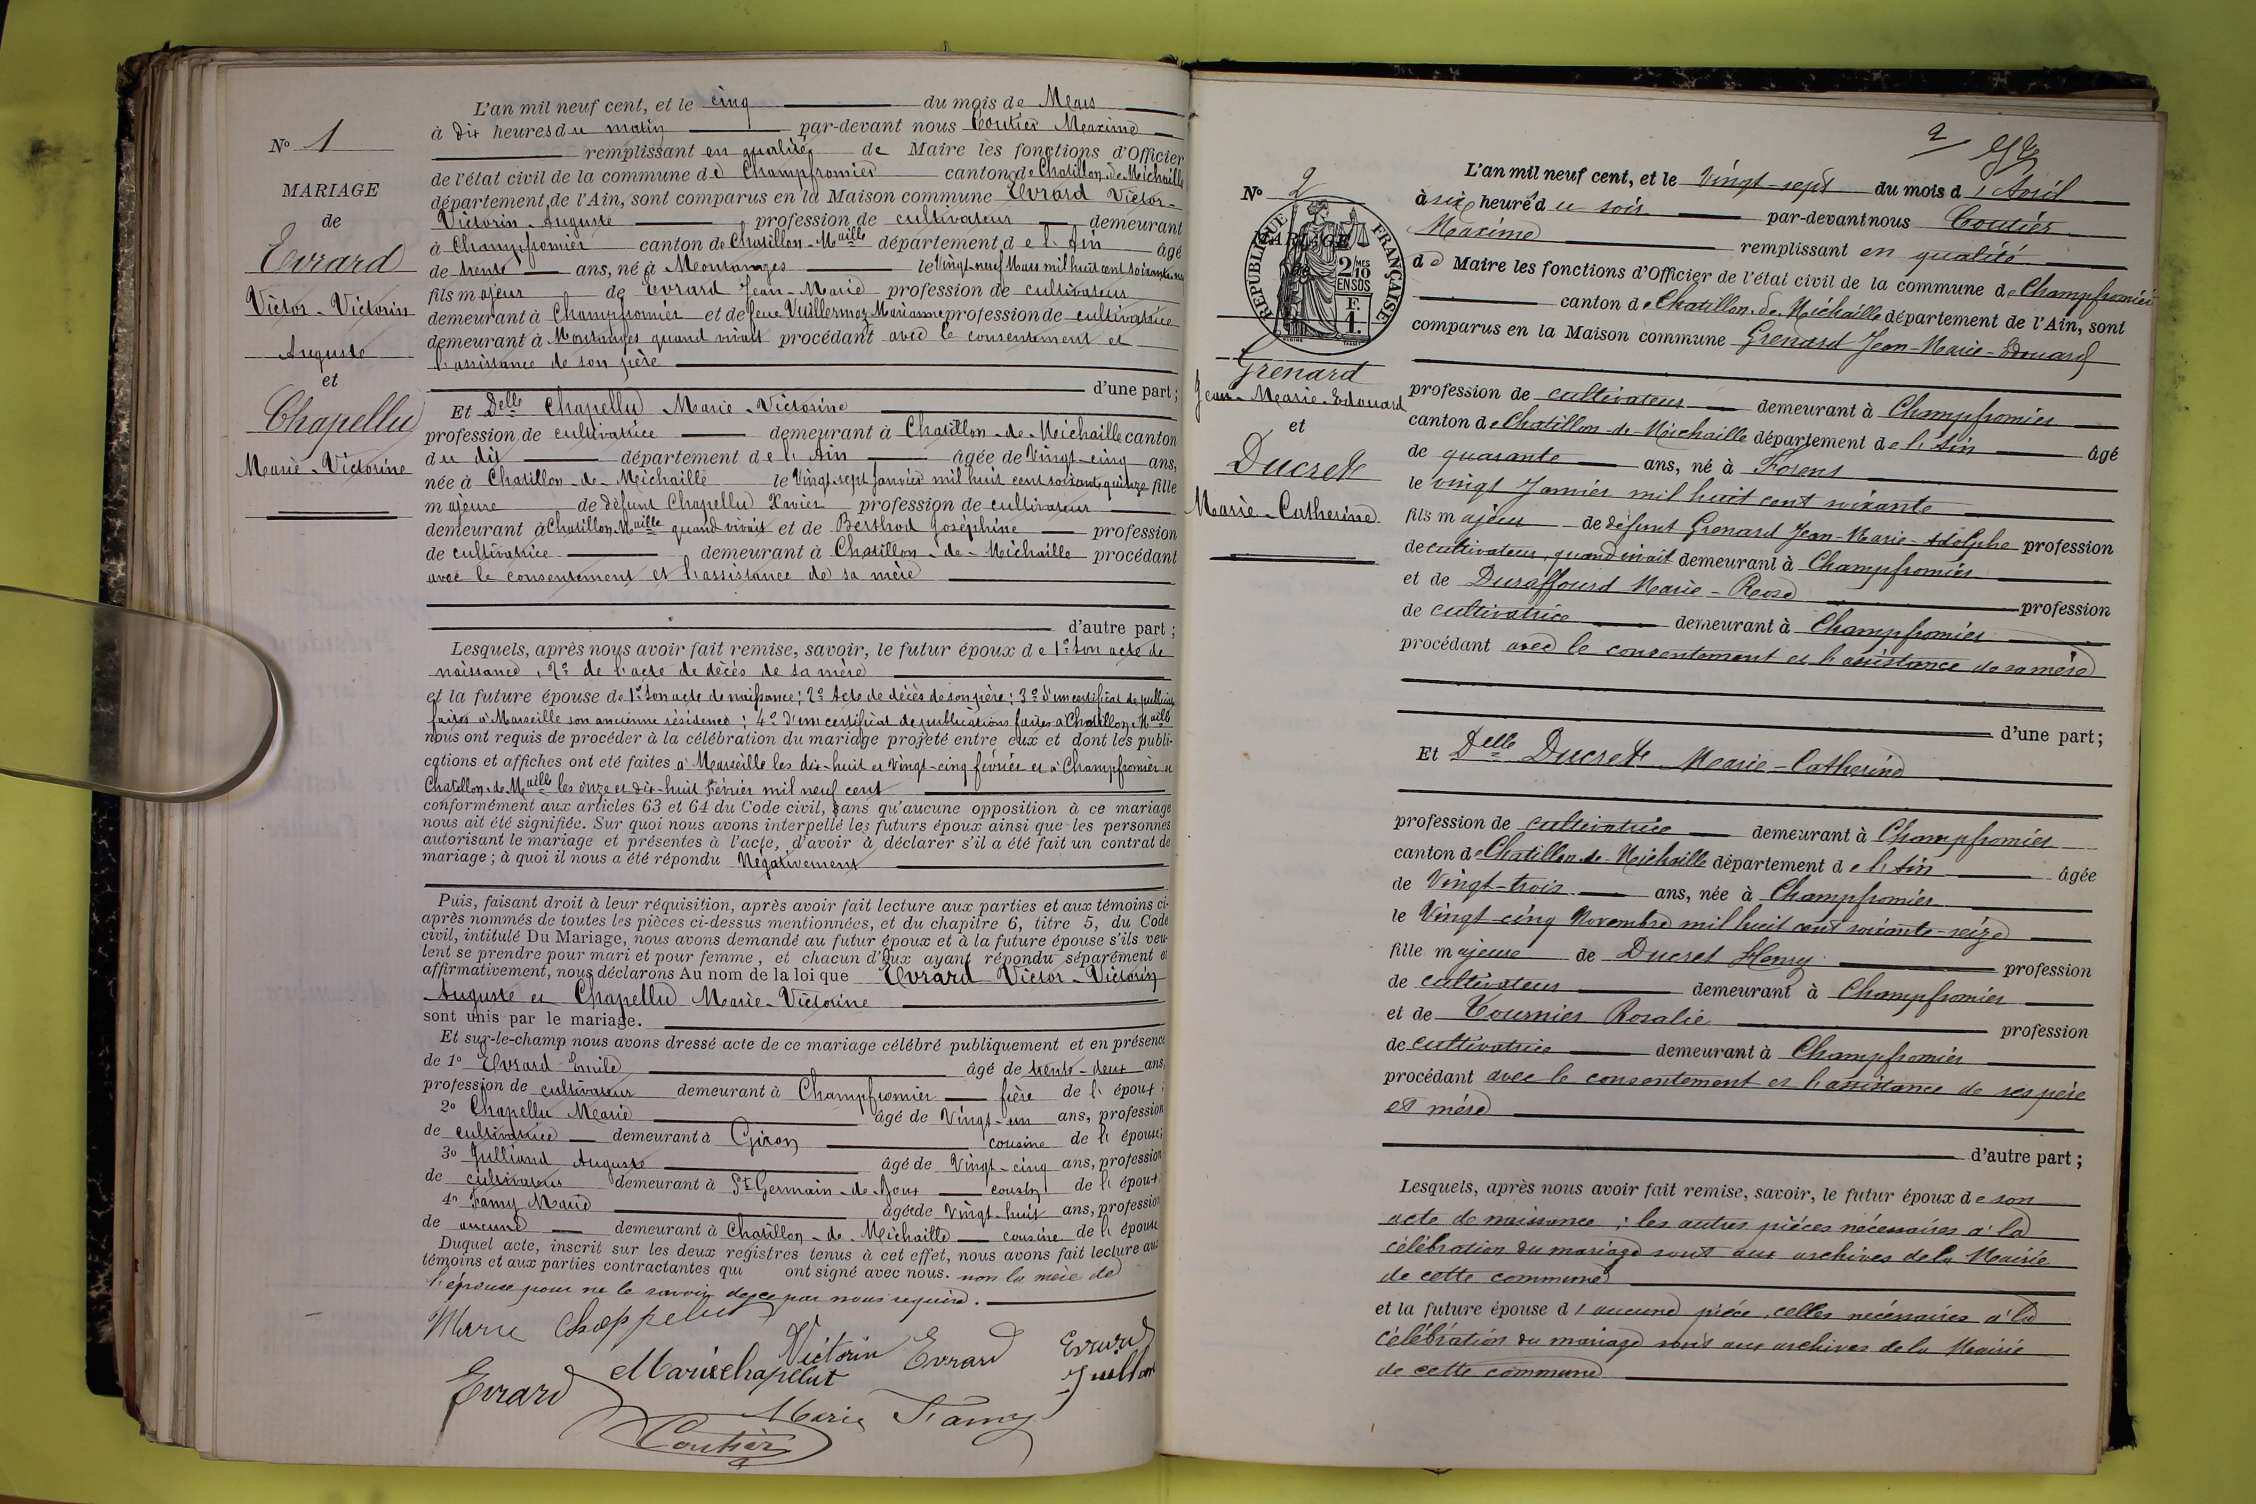 N° 1
MARIAGE
de
Evrard
Victor-Victorin
Auguste
et
Chapellu
Marie-Victorine
L'an mil neuf cent, et le cinq du mois de Mars
à dix heures du matin par-devant nous Coutier Maxime
remplissant en qualité de Maire les fonctions d'Officier
de l'état civil de la commune de Champfromier canton de Chatillon de Michaille
département de l'Ain, sont comparus en la Maison commune Evrard Victor-
Victorin-Auguste profession de cultivateur demeurant
à Champfromier canton de Chatillon-Maille département de l'Ain âgé
de trente ans, né à Montanges le Vingt-neuf Mars mil huit cent soixante
fils majeur de Evrard Jean-Marie profession de cultivateur
demeurant à Champfromier et de feue Vuillermoz Marianne profession de cultivatrice
demeurant à Montanges quand vivait procédant avec le consentement et
l'assistance de son père
d'une part;
Et Delle Chapellu Marie-Victorine
profession de cultivatrice demeurant à Chatillon-de-Michaille canton
du dit département de l'Ain âgée de Vingt-cinq ans,
née à Chatillon-de-Michaille le Vingt-sept Janvier mil huit cent soixante quinze fille
majeure de défunt Chapellu Xavier profession de cultivateur
demeurant à Chatillon-Maille quand vivait et de Berthod Joséphine profession
de cultivatrice demeurant à Chatillon-de-Michaille procédant
avec le consentement et l'assistance de sa mère
d'autre part;
Lesquels, après nous avoir fait remise, savoir, le futur époux de 1° Son acte de
naissance, 2° de l'acte de décès de sa mère
et la future épouse de 1° Son acte de naissance; 2° Acte de décès de son père; 3° d'un certificat de
faites à Marseille son ancienne résidence; 4° d'un certificat de publications faites à Chatillon-Maille
nous ont requis de procéder à la célébration du mariage projeté entre eux et dont les publi-
cations et affiches ont été faites à Marseille les dix-huit et Vingt-cinq février et à Champfromier et
Chatillon-de-Maille les onze et dix-huit Février mil neuf cent
conformément aux articles 63 et 64 du Code civil, sans qu'aucune opposition à ce mariage
nous ait été signifiée. Sur quoi nous avons interpellé les futurs époux ainsi que les personnes
autorisant le mariage et présentes à l'acte, d'avoir à déclarer s'il a été fait un contrat de
mariage; à quoi il nous a été répondu Négativement
Puis, faisant droit à leur réquisition, après avoir fait lecture aux parties et aux témoins ci-
après nommés de toutes les pièces ci-dessus mentionnées, et du chapitre 6, titre 5, du Code
civil, intitulé Du Mariage, nous avons demandé au futur époux et à la future épouse s'ils veu-
lent se prendre pour mari et pour femme, et chacun d'eux ayant répondu séparément et
affirmativement, nous déclarons Au nom de la loi que Evrard Victor-Victorin
Auguste et Chapellu Marie-Victorine
sont unis par le mariage.
Et sur-le-champ nous avons dressé acte de ce mariage célébré publiquement et en présence
de 1° Evrard Emile âgé de trente-deux ans,
profession de cultivateur demeurant à Champfromier frère de l'époux;
2° Chapellu Marie âgé de Vingt-un ans, profession
de cultivatrice demeurant à Giron cousine de l'épouse;
3° Julliand Auguste âgé de Vingt-cinq ans, profession
de cultivateur demeurant à St Germain-de-Joux cousin de l'époux;
4° Famy Marie âgée de Vingt-huit ans, profession
de aucune demeurant à Chatillon-de-Michaille cousine de l'épouse
Duquel acte, inscrit sur les deux registres tenus à cet effet, nous avons fait lecture aux
témoins et aux parties contractantes qui ont signé avec nous. non la mère de
l'épouse pour ne le savoir de ce par nous requise.
Marie Chappelu
Victorin Evrard
Evrard
Marie Chapelut
Evrard
Marie Famy
Coutier
2
N° 2
MARIAGE
de
RÉPUBLIQUE FRANÇAISE
2/10 MES
EN SUS
F.
1.
Grenard
Jean-Marie-Edouard
et
Ducret
Marie-Catherine
L'an mil neuf cent, et le Vingt-sept du mois d'Avril
à six heures du soir par-devant nous Coutier
Maxime remplissant en qualité
de Maire les fonctions d'Officier de l'état civil de la commune de Champfromier
canton de Chatillon-de-Michaille département de l'Ain, sont
comparus en la Maison commune Grenard Jean-Marie-Edouard
profession de cultivateur demeurant à Champfromier
canton de Chatillon-de-Michaille département de l'Ain âgé
de quarante ans, né à Forens
le vingt Janvier mil huit cent soixante
fils majeur de défunt Grenard Jean-Marie-Adolphe profession
de cultivateur, quand vivait demeurant à Champfromier
et de Duraffourd Marie-Rose profession
de cultivatrice demeurant à Champfromier
procédant avec le consentement et l'assistance de sa mère
d'une part;
Et Delle Ducret Marie-Catherine
profession de cultivatrice demeurant à Champfromier
canton de Chatillon-de-Michaille département de l'Ain âgée
de Vingt-trois ans, née à Champfromier
le Vingt-cinq Novembre mil huit cent soixante-seize
fille majeure de Ducret Henry profession
de cultivateur demeurant à Champfromier
et de Tournier Rosalie profession
de cultivatrice demeurant à Champfromier
procédant avec le consentement et l'assistance de ses père
et mère
d'autre part;
Lesquels, après nous avoir fait remise, savoir, le futur époux de son
acte de naissance; les autres pièces nécessaires à la
célébration du mariage sont aux archives de la Mairie
de cette commune
et la future épouse d'aucune pièce, celles nécessaires à la
célébration du mariage sont aux archives de la Mairie
de cette commune